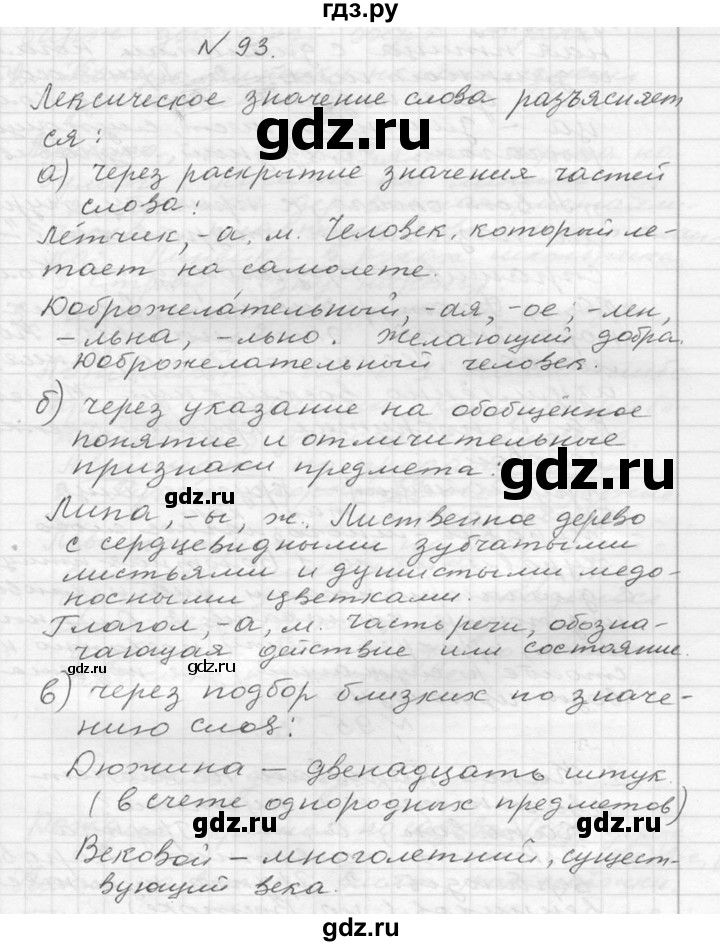 гдз.ру
№ 93.
Лексическое значение слова разъясняет
ся:
а) через раскрытие значения частей
слова:
Лётчик, -а, м. Человек, который ле-
тает на самолете.
Доброжелательный, -ая, -ое; -лен,
-льна, -льно. Желающий добра.
Доброжелательный человек.
б) через указание на обобщённое
понятие и отличительные
признаки предмета:
Липа, -ы, ж. Лиственное дерево
с сердцевидными зубчатыми
листьями и душистыми медо-
носными цветками.
Глагол, -а, м. Часть речи, обозна-
чающая действие или состояние.
в) через подбор близких по значе-
нию слов:
Дюжина – двенадцать штук
(в счете однородных предметов)
Вековой – многолетний, сущест-
вующий века.
gdz.ru
gdz.ru
gdz.ru
gdz.ru
gdz.ru
gdz.ru
gdz.ru
gdz.ru